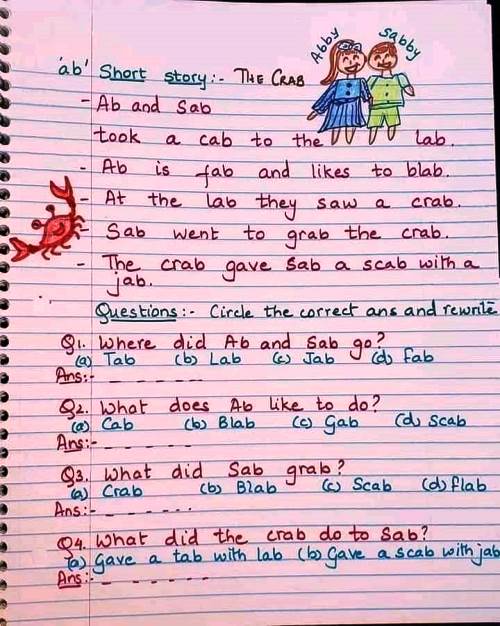 Abby Sabby
'ab' Short story:- THE CRAB
- Ab and Sab
took a cab to the lab.
- Ab is fab and likes to blab.
- At the lab they saw a crab.
- Sab went to grab the crab.
- The crab gave Sab a scab with a
jab.
Questions:- Circle the correct ans and rewrite
Q1. Where did Ab and Sab go?
(a) Tab (b) Lab (c) Jab (d) Fab
Ans:- - - - - - -
Q2. What does Ab like to do?
(a) Cab (b) Blab (c) Gab (d) Scab
Ans:- - - - - - -
Q3. What did Sab grab?
(a) Crab (b) Blab (c) Scab (d) flab
Ans:- - - - - - -
Q4. What did the crab do to Sab?
(a) Gave a tab with lab (b) Gave a scab with jab
Ans:- - - - - - -